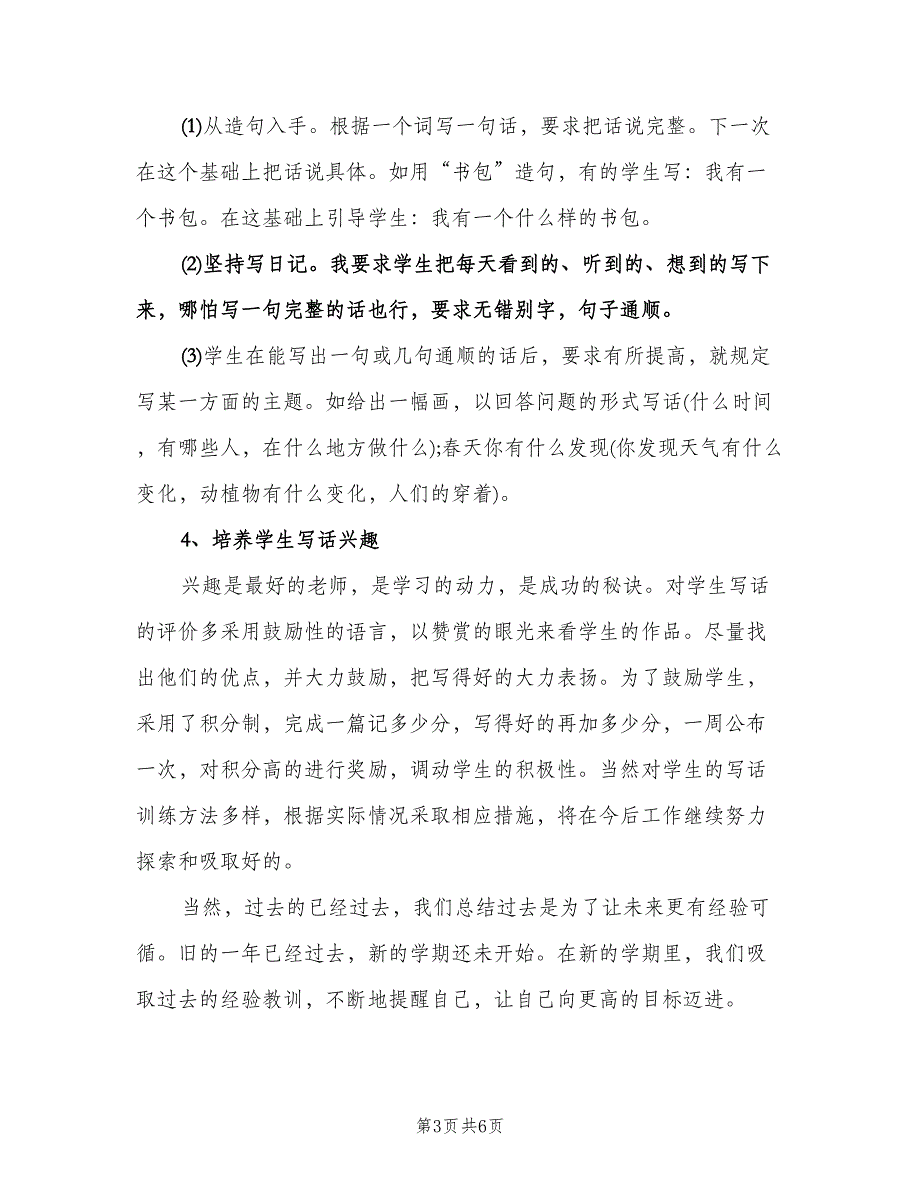 ⑴从造句入手。根据一个词写一句话，要求把话说完整。下一次
在这个基础上把话说具体。如用“书包”造句，有的学生写：我有一
个书包。在这基础上引导学生：我有一个什么样的书包。
⑵坚持写日记。我要求学生把每天看到的、听到的、想到的写下
来，哪怕写一句完整的话也行，要求无错别字，句子通顺。
⑶学生在能写出一句或几句通顺的话后，要求有所提高，就规定
写某一方面的主题。如给出一幅画，以回答问题的形式写话(什么时间
，有哪些人，在什么地方做什么);春天你有什么发现(你发现天气有什么
变化，动植物有什么变化，人们的穿着)。
4、培养学生写话兴趣
兴趣是最好的老师，是学习的动力，是成功的秘诀。对学生写话
的评价多采用鼓励性的语言，以赞赏的眼光来看学生的作品。尽量找
出他们的优点，并大力鼓励，把写得好的大力表扬。为了鼓励学生，
采用了积分制，完成一篇记多少分，写得好的再加多少分，一周公布
一次，对积分高的进行奖励，调动学生的积极性。当然对学生的写话
训练方法多样，根据实际情况采取相应措施，将在今后工作继续努力
探索和吸取好的。
当然，过去的已经过去，我们总结过去是为了让未来更有经验可
循。旧的一年已经过去，新的学期还未开始。在新的学期里，我们吸
取过去的经验教训，不断地提醒自己，让自己向更高的目标迈进。
第3页共6页